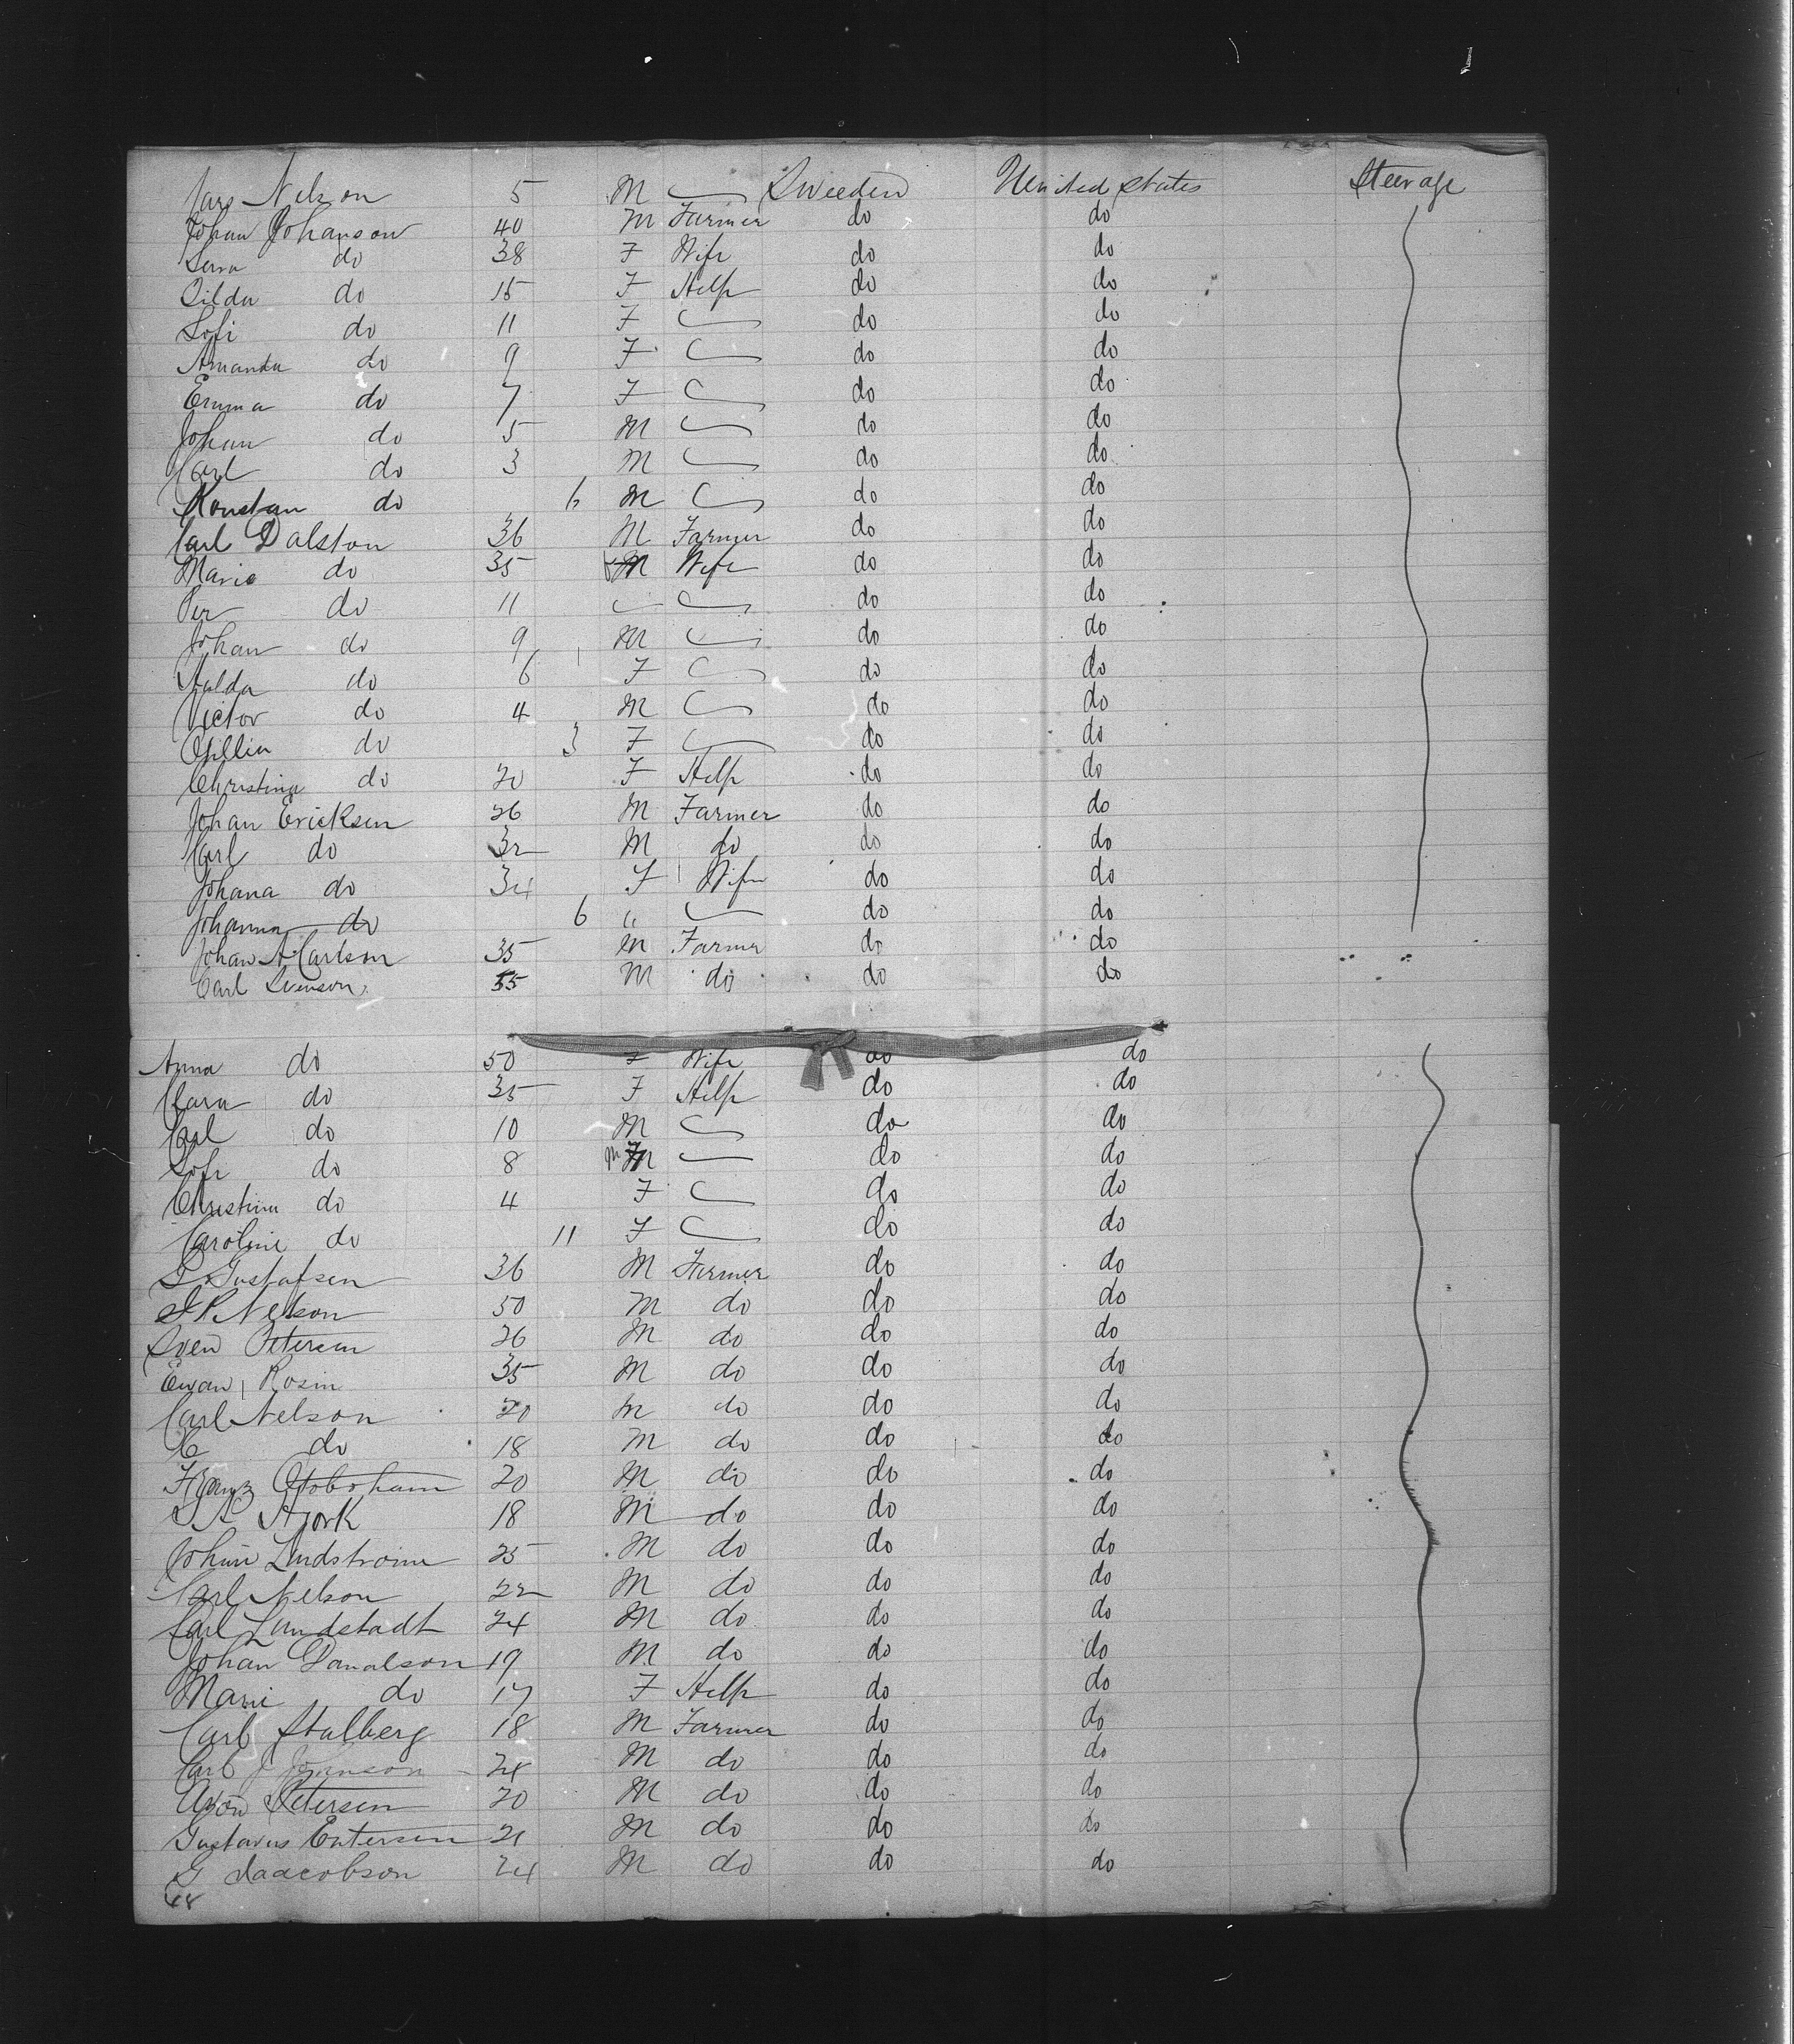 Lars Nelson 5 M Sweeden United States Steerage
Johan Johanson 40 M Farmer do do
Lena do 38 F Wife do do
Tilda do 15 F Help do do
Sofi do 11 F do do
Amanda do 9 F do do
Emma do 7 F do do
Johan do 5 M do do
Carl do 3 M do do
Konstan do 6 M do do
Carl Dalston 36 M Farmer do do
Marie do 35 M Wife do do
Per do 11 do do
Johan do 9 M do do
Hulda do 6 F do do
Victor do 4 M do do
do 3 F do do
Christina do 20 F Help do do
Johan Ericksen 26 M Farmer do do
Carl do 32 M do do do
Johana do 34 F Wife do do
Johanna do 6 " do do
Johan A Carlson 35 M Farmer do do
Carl Svenson 55 M do do do
Anna do 50 F Wife do do
Clara do 35 F Help do do
Carl do 10 M do do
Sofi do 8 M do do
Christina do 4 F do do
Caroline do 11 F do do
G Gustafsen 36 M Farmer do do
P Nelson 50 M do do do
Sven Petersen 26 M do do do
Ewan Rosin 35 M do do do
Carl Nelson 20 M do do do
C do 18 M do do do
Franz 20 M do do do
18 M do do do
Johan Lindstrom 25 M do do do
Carl Nelson 22 M do do do
Carl Lundstadt 24 M do do do
Johan Danalson 19 M do do do
Marie do 17 F Help do do
Carl Stalberg 18 M Farmer do do
Carl J Johnson 24 M do do do
Petersen 20 M do do do
Gustavus Entersen 21 M do do do
G Isaacobson 24 M do do do
48